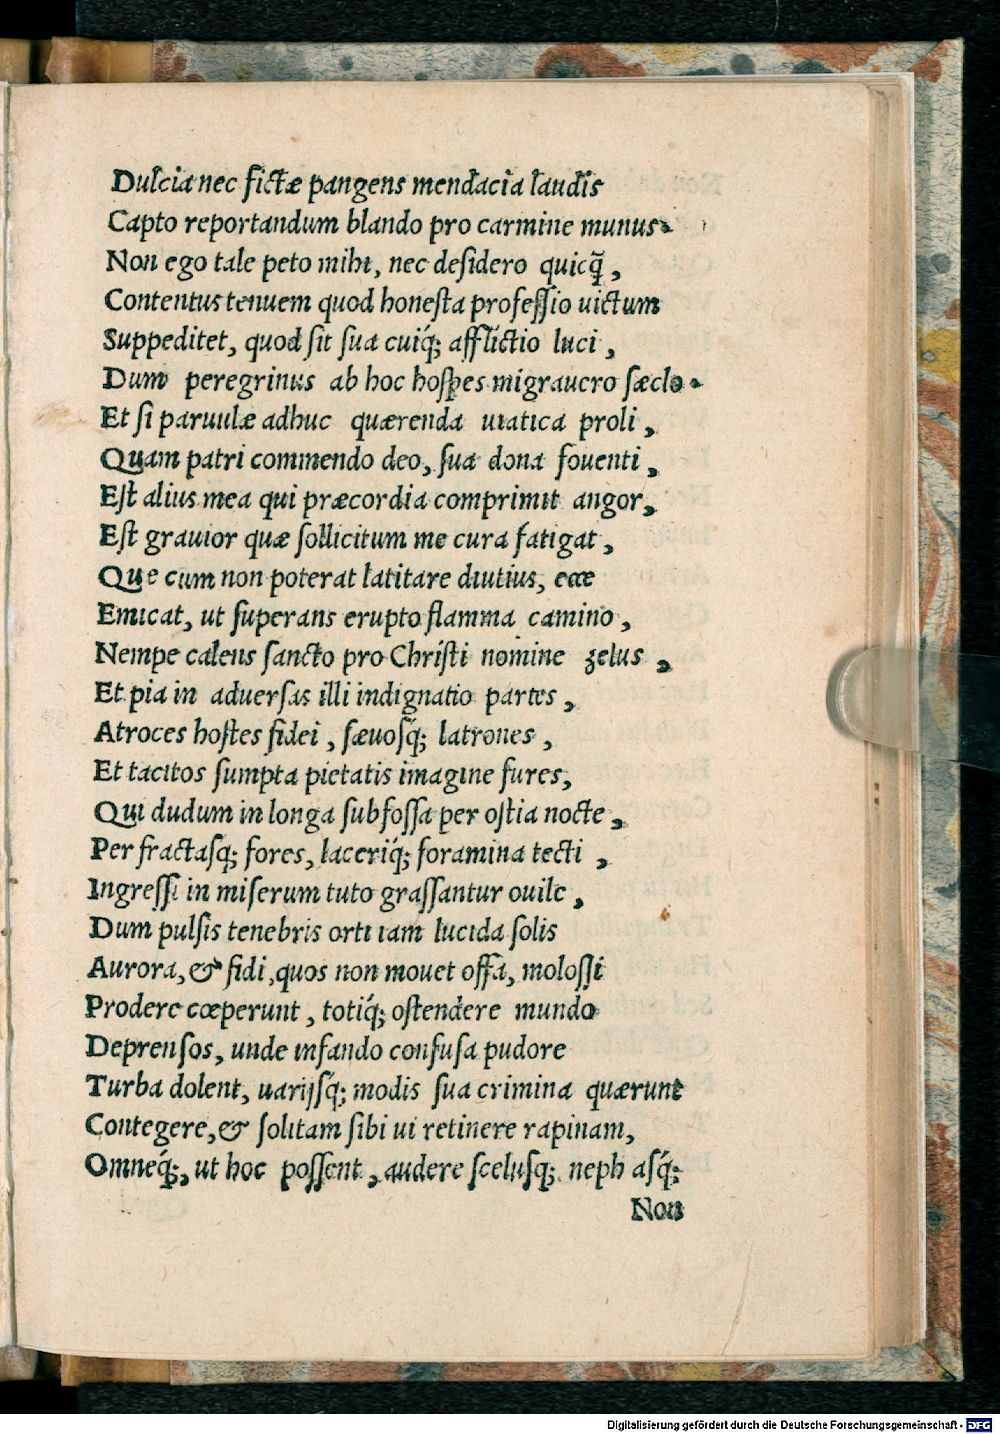 Dulcia nec fictæ pangens mendacia laudis
Capto reportandum blando pro carmine munus.
Non ego tale peto mihi, nec desidero quicq̃,
Contentus tenuem quod honesta professio uictum
Suppeditet, quod sit sua cuiq́; afflictio luci,
Dum peregrinus ab hoc hospes migrauero sæclo.
Et si paruulæ adhuc quærenda uiatica proli,
Quam patri commendo deo, sua dona fouenti,
Est alius mea qui præcordia comprimit angor,
Est grauior quæ sollicitum me cura fatigat,
Que cum non poterat latitare diutius, ecce
Emicat, ut superans erupto flamma camino,
Nempe calens sancto pro Christi nomine zelus,
Et pia in aduersas illi indignatio partes,
Atroces hostes fidei, sæuosq́; latrones,
Et tacitos sumpta pietatis imagine fures,
Qui dudum in longa subfossa per ostia nocte,
Per fractasq́; fores, laceriq́; foramina tecti,
Ingressi in miserum tuto grassantur ouile,
Dum pulsis tenebris orti iam lucida solis
Aurora, & fidi, quos non mouet offa, molossi
Prodere cœperunt, totiq́; ostendere mundo
Deprensos, unde infando confusa pudore
Turba dolent, uarijsq́; modis sua crimina quærunt
Contegere, & solitam sibi ui retinere rapinam,
Omneq́;, ut hoc possent, audere scelusq́; nephasq́;
Non
Digitalisierung gefördert durch die Deutsche Forschungsgemeinschaft - DFG